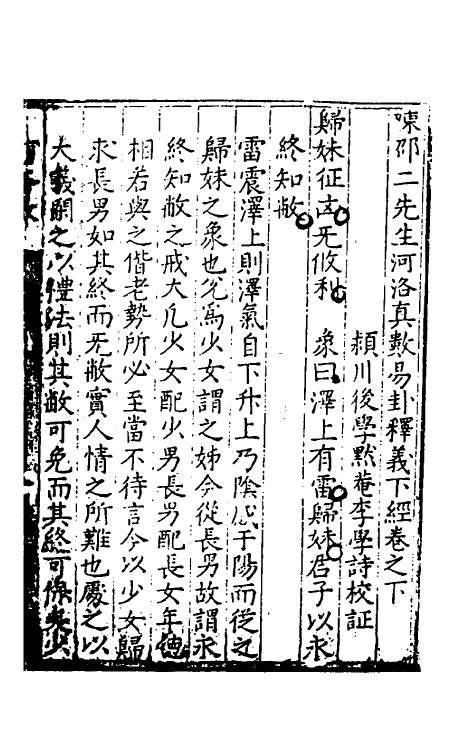 陳邵二先生河洛真數易卦釋義下經卷之下
頴川後學默菴李學詩校証
歸妹征凶无攸利　象曰澤上有雷歸妹君子以永
終知敝
雷震澤上則澤氣自下升上乃陰感于陽而從之
歸妹之象也兊爲少女謂之姊今從長男故謂永
終知敝之戒大凢少女配少男長男配長女年德
相若與之偕老勢所必至當不待言今以少女歸
求長男如其終而旡敝實人情之所難也處之以
大義閑之以禮法則其敝可免而其終可保